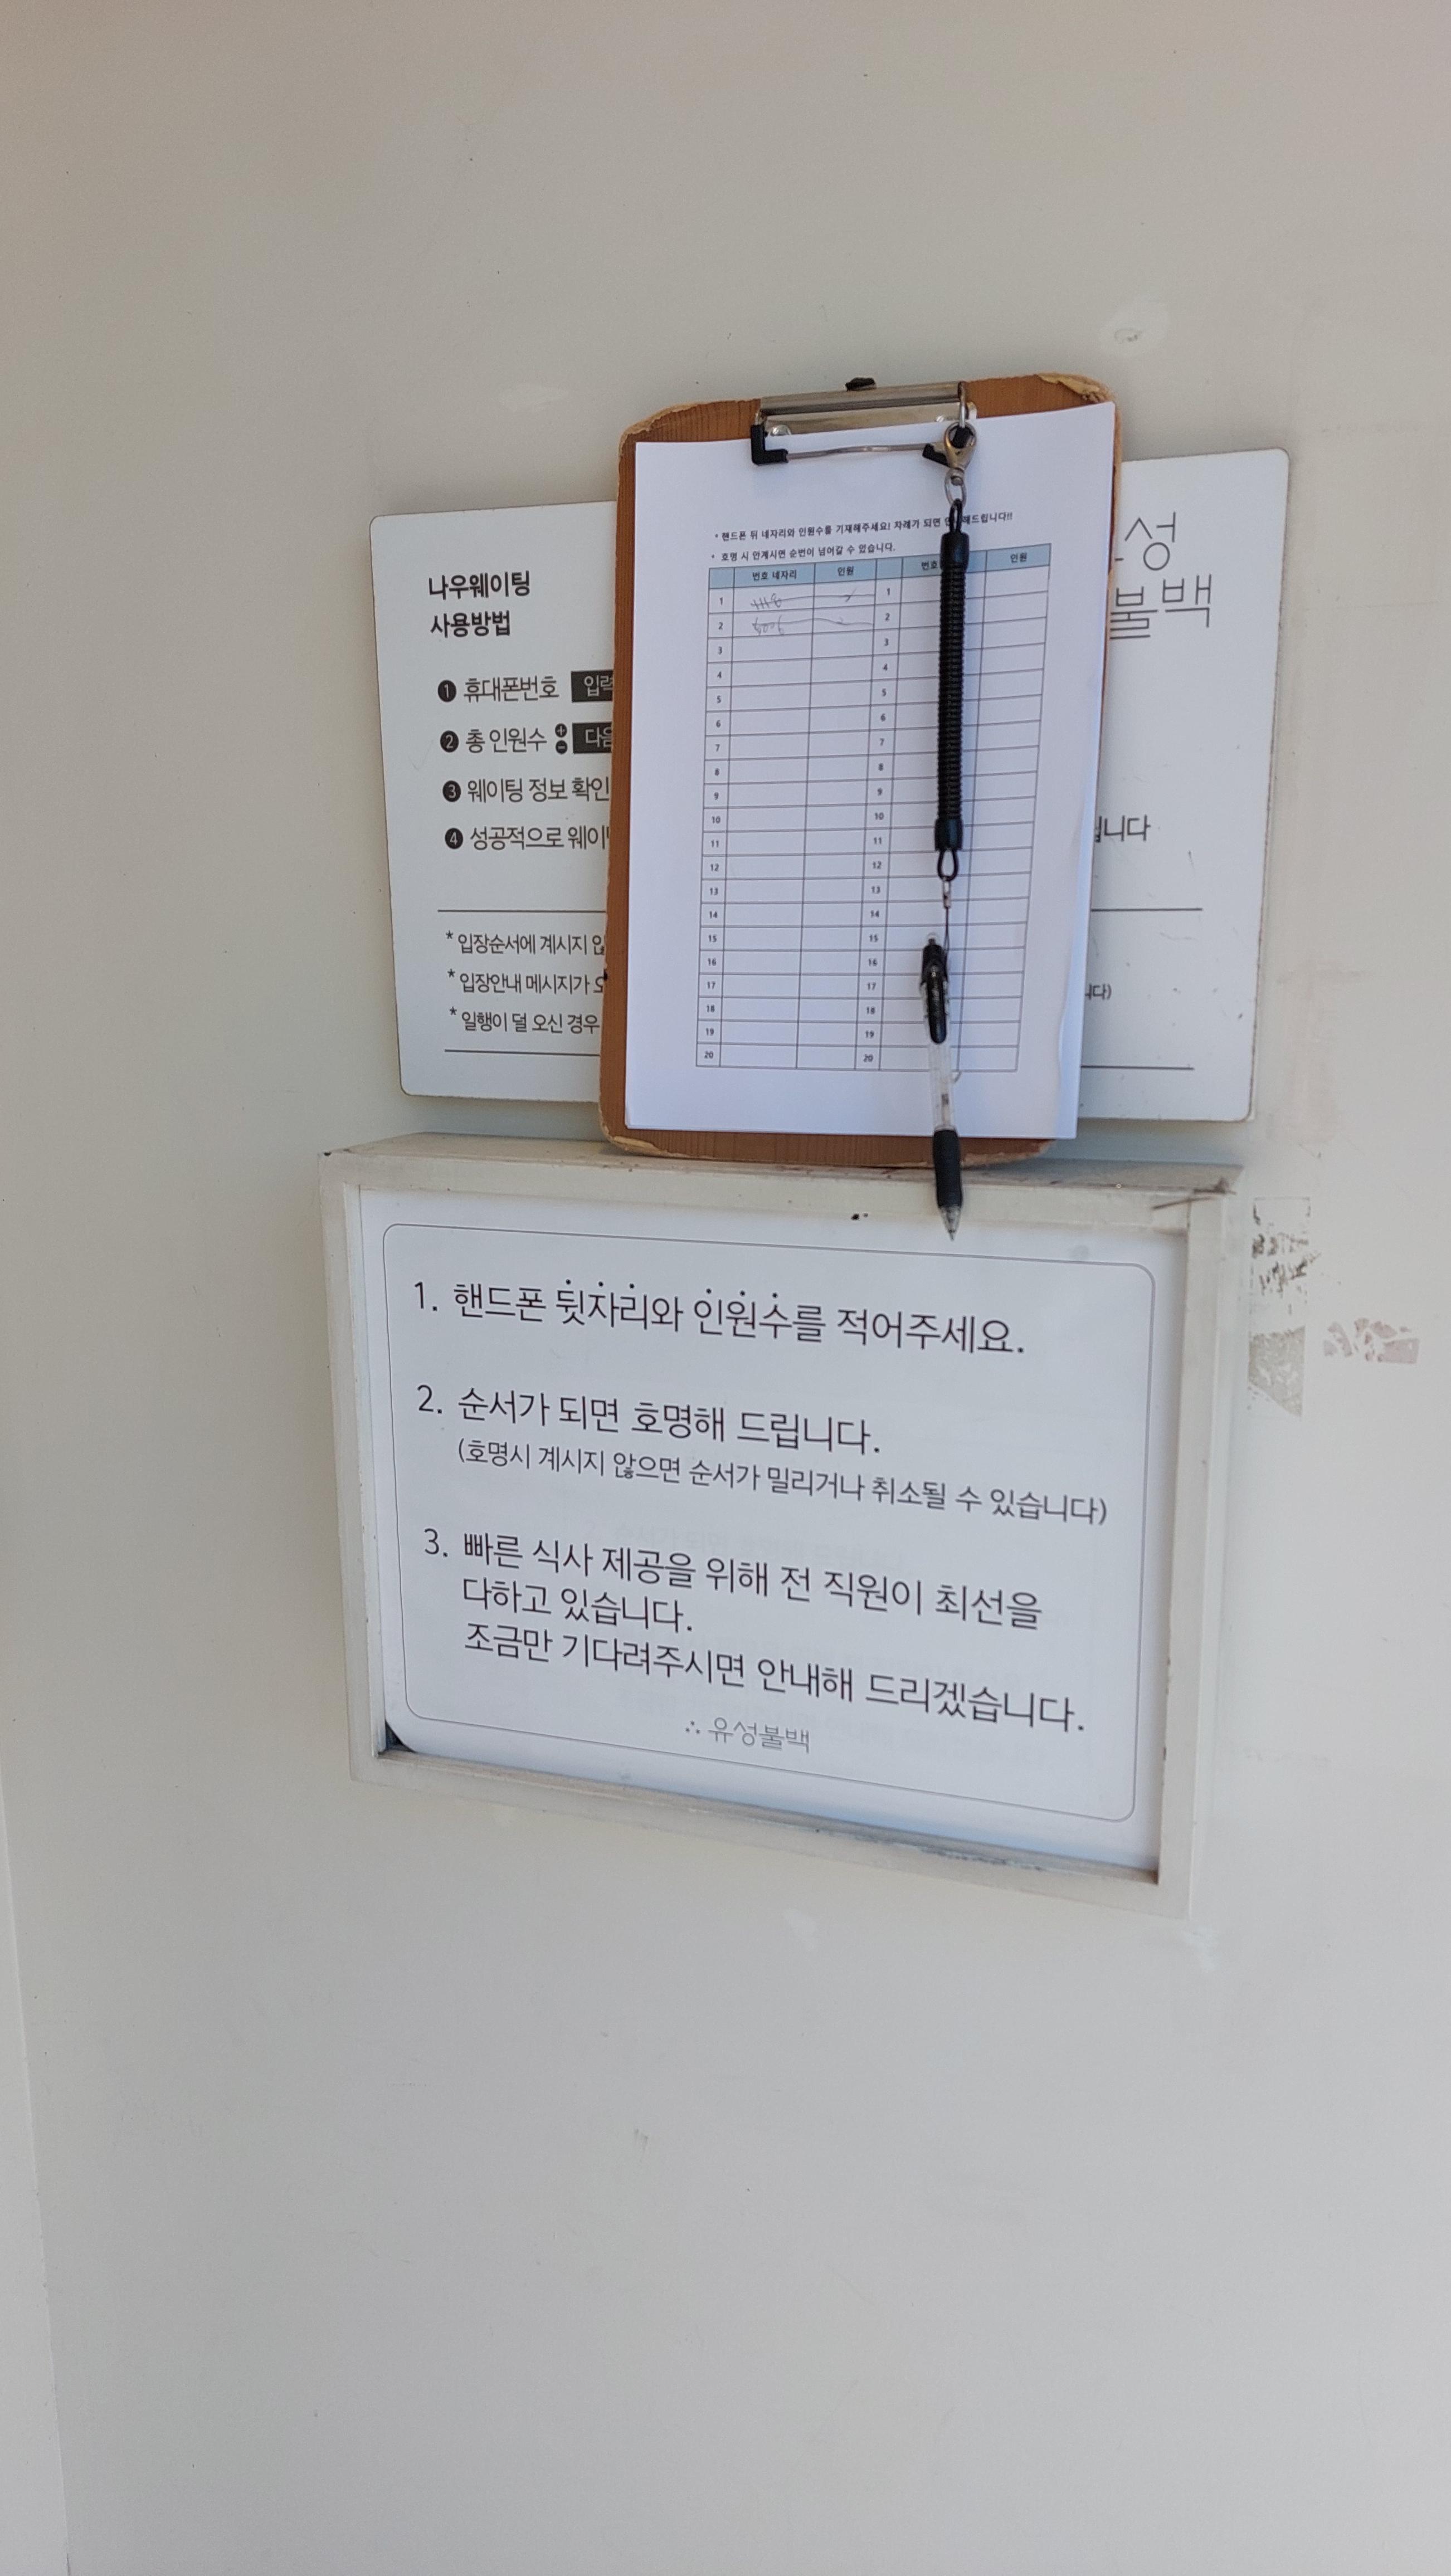 나우웨이팅
사용방법
1 휴대폰번호 입력
2 총 인원수 + - 다음
3 웨이팅 정보 확인
4 성공적으로
* 입장순서에 계시지
* 입장안내 메시지가
* 일행이 덜 오신 경우
성
불백
니다
니다)
* 핸드폰 뒤 네자리와 인원수를 기재해주세요! 차례가 되면 해드립니다!!
* 호명 시 안계시면 순번이 넘어갈 수 있습니다.
번호 네자리 인원 번호 인원
1 1
2 2
3 3
4 4
5 5
6 6
7 7
8 8
9 9
10 10
11 11
12 12
13 13
14 14
15 15
16 16
17 17
18 18
19 19
20 20
1. 핸드폰 뒷자리와 인원수를 적어주세요.
2. 순서가 되면 호명해 드립니다.
(호명시 계시지 않으면 순서가 밀리거나 취소될 수 있습니다)
3. 빠른 식사 제공을 위해 전 직원이 최선을
다하고 있습니다.
조금만 기다려주시면 안내해 드리겠습니다.
∴ 유성불백